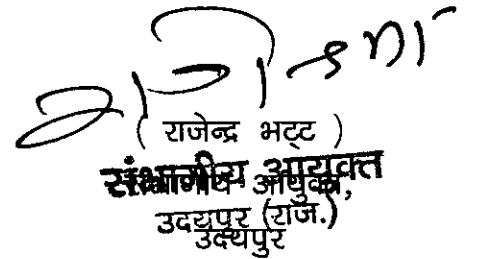 ( राजेन्द्र भट्ट )
संभागीय आयुक्त
संभागीय आयुक्त,
उदयपुर (राज.)
उदयपुर